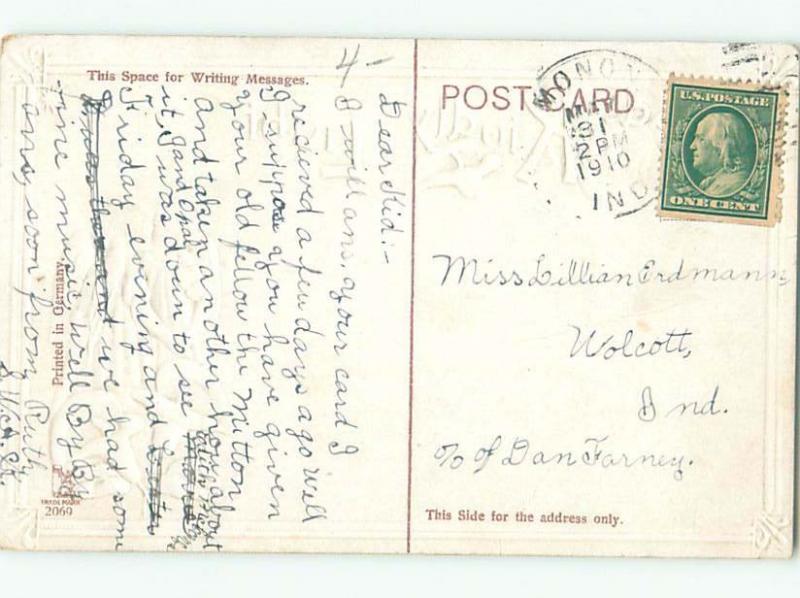 This Space for Writing Messages.
4-
Dear Kid:-
I will ans. your card I
recieved a few days ago well
I suppose you have given
your old fellow the Mitton
and taken another how about
it, I and Chal
I was down to see
Friday evining and
we had some
fine music, well By By
ans, soon from Ruth
Printed in Germany.
TRADE MARK
2069
POST CARD
MONON
MAR
31
2 PM
1910
IND
U.S. POSTAGE
ONE CENT
Miss Lillian Erdmann
Wolcott,
Ind.
c/o of Dan Farney.
This Side for the address only.